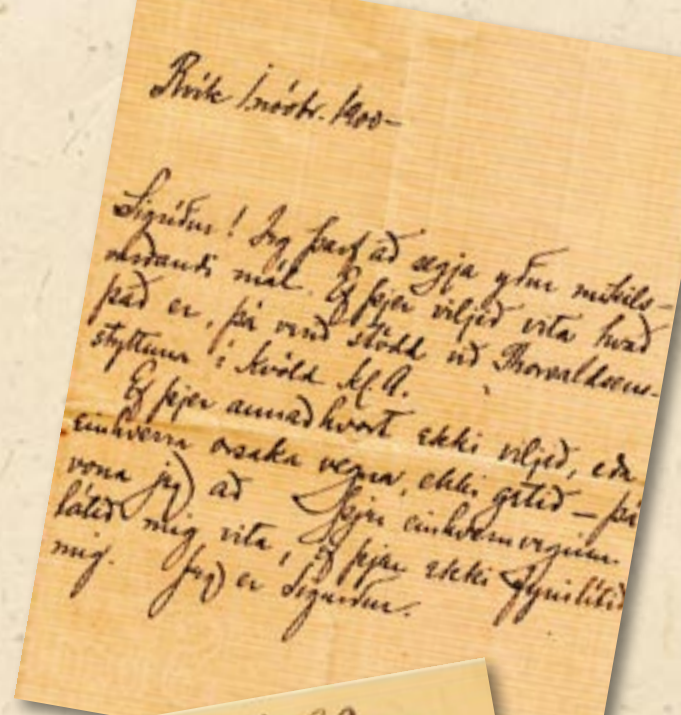 Rvík 1. nóvbr. 1900 –
Sigríður! Jeg þarf að segja yður mikils-
varðandi mál. Ef þjer viljið vita hvað
það er, þá verið stödd við Thorvaldsens-
styttuna í kvöld kl. 9.
Ef þjer annaðhvort ekki viljið, eða
einhverra orsaka vegna, ekki getið – þá
vona jeg að þjer einhvernveginn
látið mig vita, ef þjer ekki fyrirlítið
mig. Jeg er Sigurður.